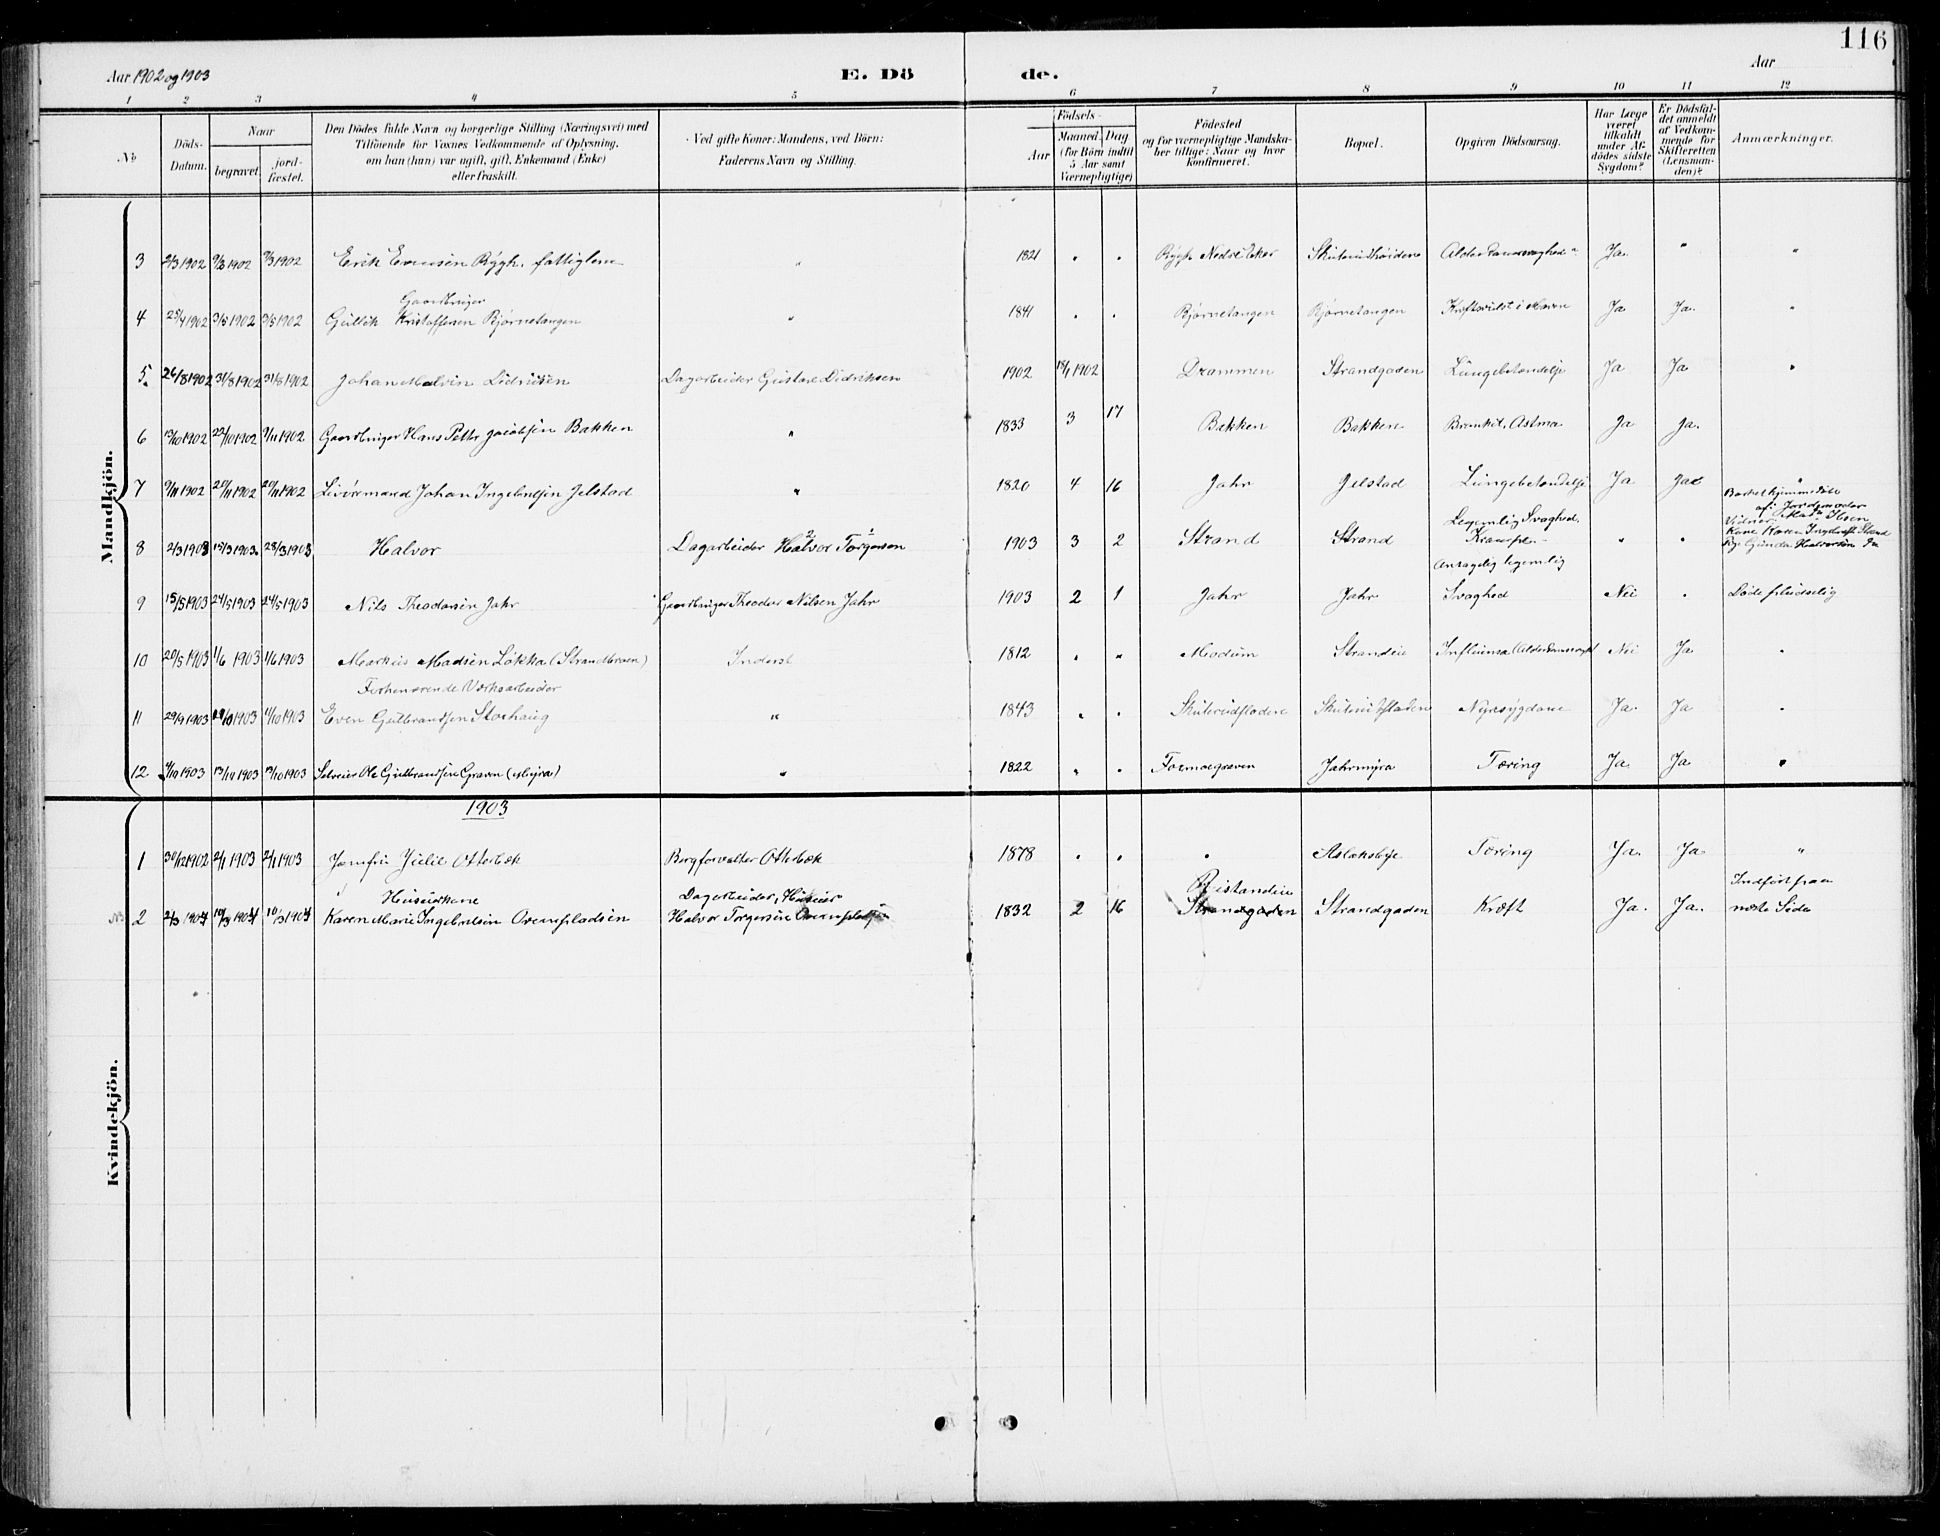 116
Aar 1902 og 1903
E. Dö de.
Aar
1 2 3 4 5 6 7 8 9 10 11 12
No
Döds-Datum.
Naar
begravet.
jord-fæstet.
Den Dödes fulde Navn og borgerlige Stilling (Næringsvei) med
Tilföiende for Voxnes Vedkommende af Oplysning,
om hun (han) var ugift, gift, Enkemand (Enke)
eller fraskilt.
Ved gifte Koner: Mandens, ved Börn:
Faderens Navn og Stilling.
Födsels-
Aar
Maaned. Dag
(for Börn indtil
5 Aar samt
Værnepligtige)
Födested
og for værnepligtige Mandska-
ber tillige: Naar og hvor
Konfirmeret.
Bopæl.
Opgiven Dödsaarsag.
Har Læge
været
tilkaldt
under Af-
dödes sidste
Sygdom?
Er Dödsfal-
det anmeldt
af Vedkom-
mende for
Skifteretten
(Lensman-
den)?
Anmærkninger.
Mandkjön.
3 2/3 1902 9/3 1902 9/3 1902 Erik Evensen Rygh, fattiglem " 1821 " " Rygh Nedre Eker Ja " "
Gaardbruger
4 25/4 1902 3/5 1902 3/5 1902 Gullik Kristoffersen Bjørnetangen " 1841 " " Bjørnetangen Bjørnetangen Ja Ja "
5 26/8 1902 31/8 1902 31/8 1902 Johan Malvin Didriksen Dagarbeider Gustav Didriksen 1902 1902 Drammen Strandgaden Lungebetændelse Ja Ja "
6 13/10 1902 22/10 1902 9/11 1902 Gaardbruger Hans Petter Jacobsen Bakken " 1833 3 17 Bakken Bakken Bronkit, Astma Ja Ja
7 9/11 1902 20/11 1902 20/11 1902 Johan Ingebretsen Jelstad " 1820 4 16 Jahr Jelstad Lungebetændelse Ja Ja "
af Jordemoder
Legemlig Svaghed,
8 2/3 1903 15/3 1903 28/3 1903 Halvor Dagarbeider Halvor Torgersen 1903 3 2 Strand Strand Krampe " "
Antagelig legemlig
9 15/5 1903 24/5 1903 24/5 1903 Nils Theodorsen Jahr Gaardbruger Theodor Nilsen Jahr 1903 2 1 Jahr Jahr Svaghed Nei " Døde pludselig
10 20/5 1903 1/6 1903 1/6 1903 Markus Madsen Løkka (Strandbraaten) Inderst 1812 " " Modum Strandeie Nei Ja "
Forhenværende Værksarbeider
11 29/9 1903 1903 11/10 1903 Even Gulbrandsen Storhaug " 1843 " " Skuterudfladen Skuterudfladen Nyresygdom Ja Ja "
12 4/10 1903 13/10 1903 13/10 1903 Selveier Ole Gulbrandsen Graven (Myra) " 1822 " " Jahrmyra Tæring Ja Ja "
Kvindekjön.
1903
1 30/12 1902 2/1 1903 2/1 1903 Jomfru Julie Otterbæk Bergforvalter Otterbæk 1878 " " " Aslaksbye Tæring Ja Ja "
Huseierkone Dagarbeider, Huseier Indført fraa
2 2/3 1904 10/3 1904 10/3 1904 Karen Marie Ingebretsen Ovenpladsen Halvor Torgersen 1832 2 16 Strandgaden Strandgaden Kræft Ja Ja næste Side